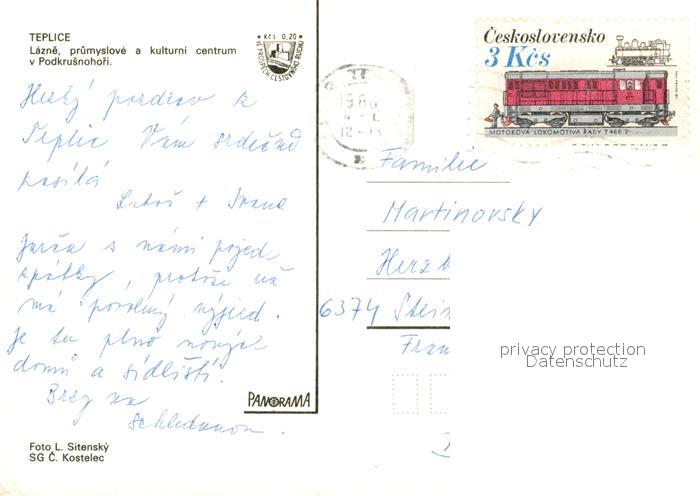 TEPLICE
Lázně, průmyslové a kulturní centrum
v Podkrušnohoří.
Kčs 0,20
VE PROSPĚCH CESTOVNÍHO RUCHU
Hezký pozdrav z
Teplic Vám srdečně
posílá
Luboš + Ivana
Jarča s námi pojede
zpátky, protože už
má povolený výjezd.
Je tu plno nových
domů a sídlišť.
Brzy na
schledanou.
Foto L. Sitenský
SG Č. Kostelec
PANORAMA
Československo
3 Kčs
MOTOROVÁ LOKOMOTIVA ŘADY T 466.2
Familie
Martinovsky
Herzb
6374 Stein
Fran
privacy protection
Datenschutz